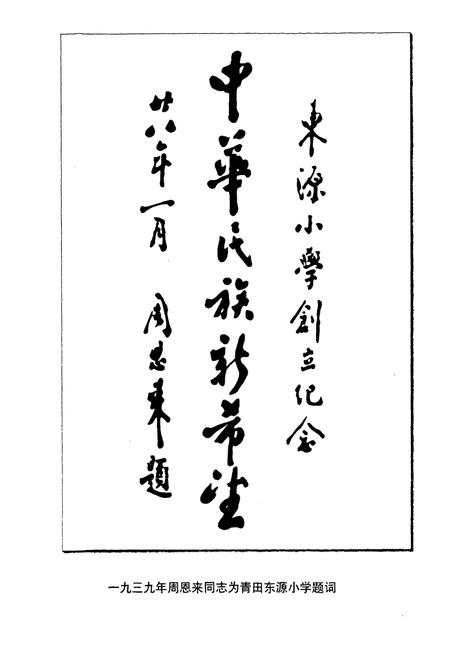 東源小學創立纪念
中華民族新希望
廿八年一月 周恩來題
一九三九年周恩来同志为青田东源小学题词